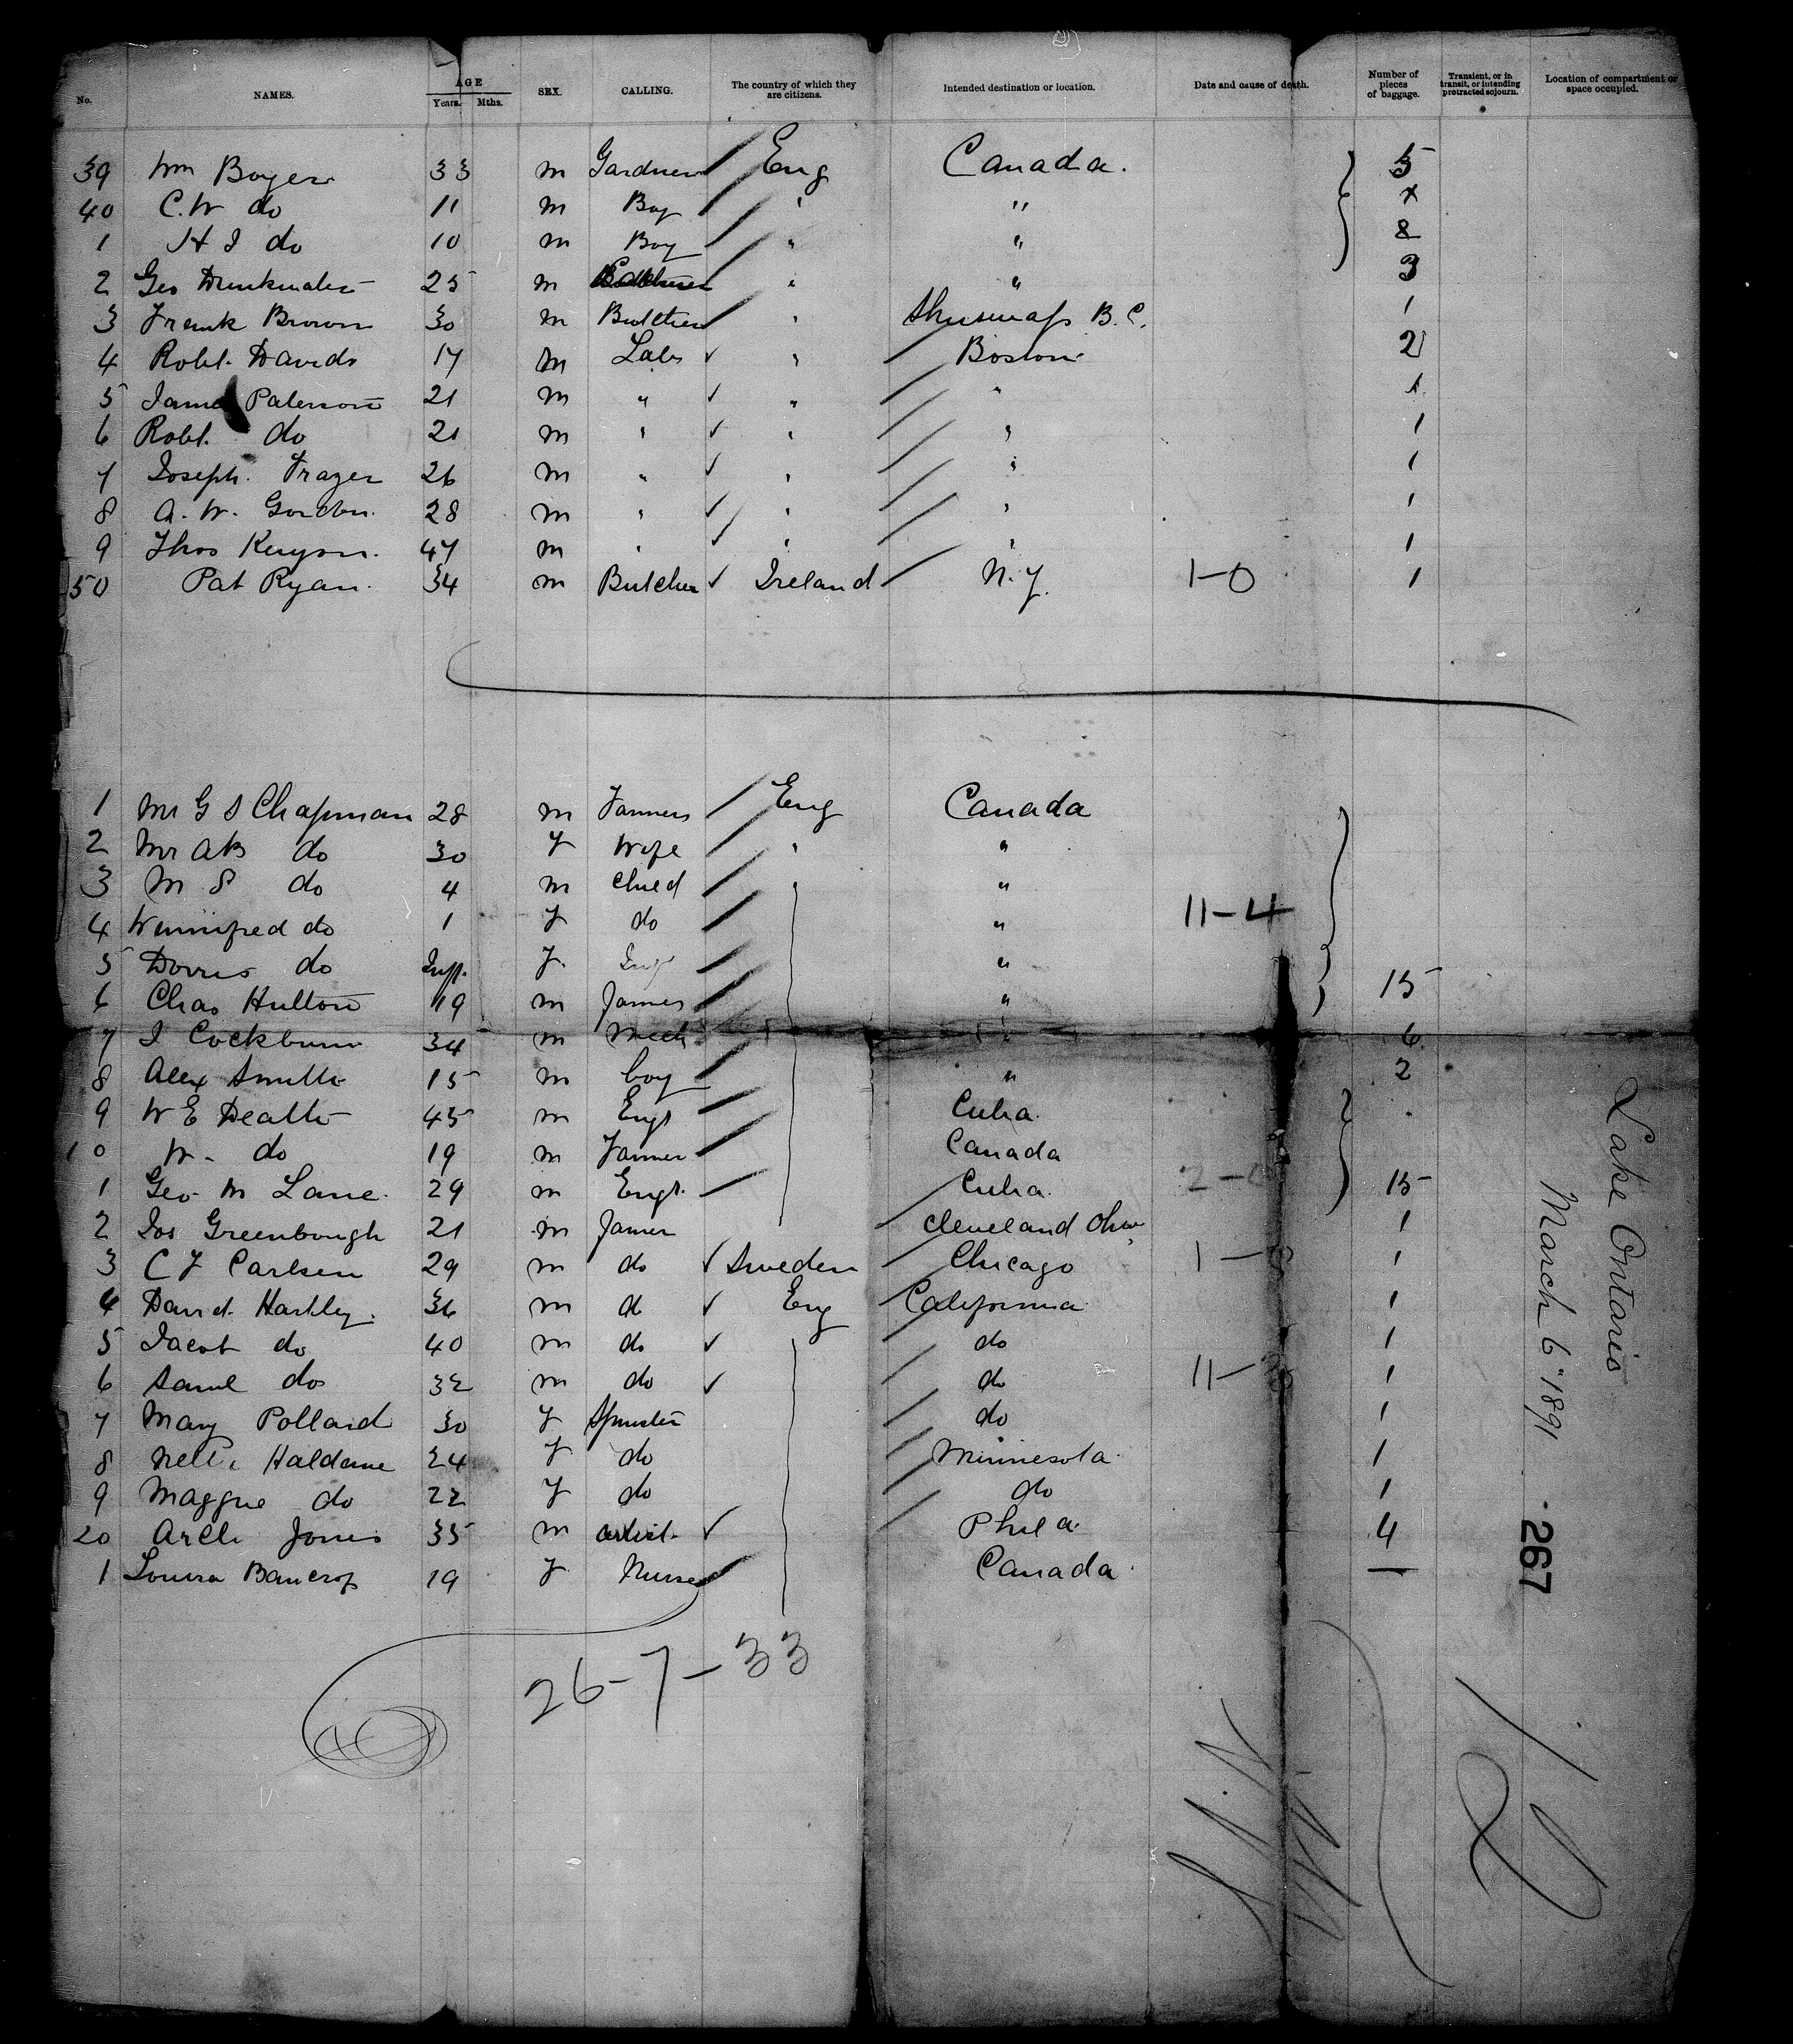 No. NAMES. AGE Years. Mths. SEX. CALLING. The country of which they are citizens. Intended destination or location. Date and cause of death. Number of pieces of baggage. Transient, or in transit, or intending protracted sojourn. Location of compartment or space occupied.
39 Wm Boyer 33 m Gardner Eng Canada. 5
40 C. W do 11 m Boy " " x
1 H J do 10 m Boy " " 8
2 Geo Drinkwater 25 m " " 3
3 Frank Brown 30 m Butcher " Shuswap B. C. 1
4 Robt. Davids 17 m Lab " Boston 2
5 James Paterson 21 m " " " 1
6 Robt. do 21 m " " " 1
7 Joseph Frazer 26 m " " " 1
8 A. W. Gordon. 28 m " " " 1
9 Thos Kenyon. 47 m " " " 1
50 Pat Ryan. 34 m Butcher Ireland N. Y. 1-0 1
1 Mr G S Chapman 28 m Farmer Eng Canada
2 Mrs AB do 30 F Wife " "
3 M S do 4 m Child " "
4 Winnifred do 1 F do " 11-4
5 Dorris do Inft. F. Inft "
6 Chas Hulton 19 m Farmer " 15
7 J Cockburn 34 m Mech " 6
8 Alex Smith 15 m boy " 2
9 W E Death 45 m Engr Cuba.
10 W. do 19 m Farmer Canada
1 Geo. M Lane. 29 m Engr. Cuba. 2- 15
2 Jos Greenbough 21 m Farmer Cleveland Ohio 1
3 C F Carlsen 29 m do Sweden Chicago 1- 1
4 David Hartley. 36 m do Eng California 1
5 Jacob do 40 m do do 1
6 Saml do 32 m do do 11- 1
7 Mary Pollard 30 F Spinster do 1
8 Nellie Haldane 24 F do Minnesota 1
9 Maggie do 22 F do do 1
20 Arch Jones 35 m artist Phila. 4
1 Louisa Bancrof 19 F Nurse Canada —
26-7-33
Lake Ontario
March 6" 1891
267